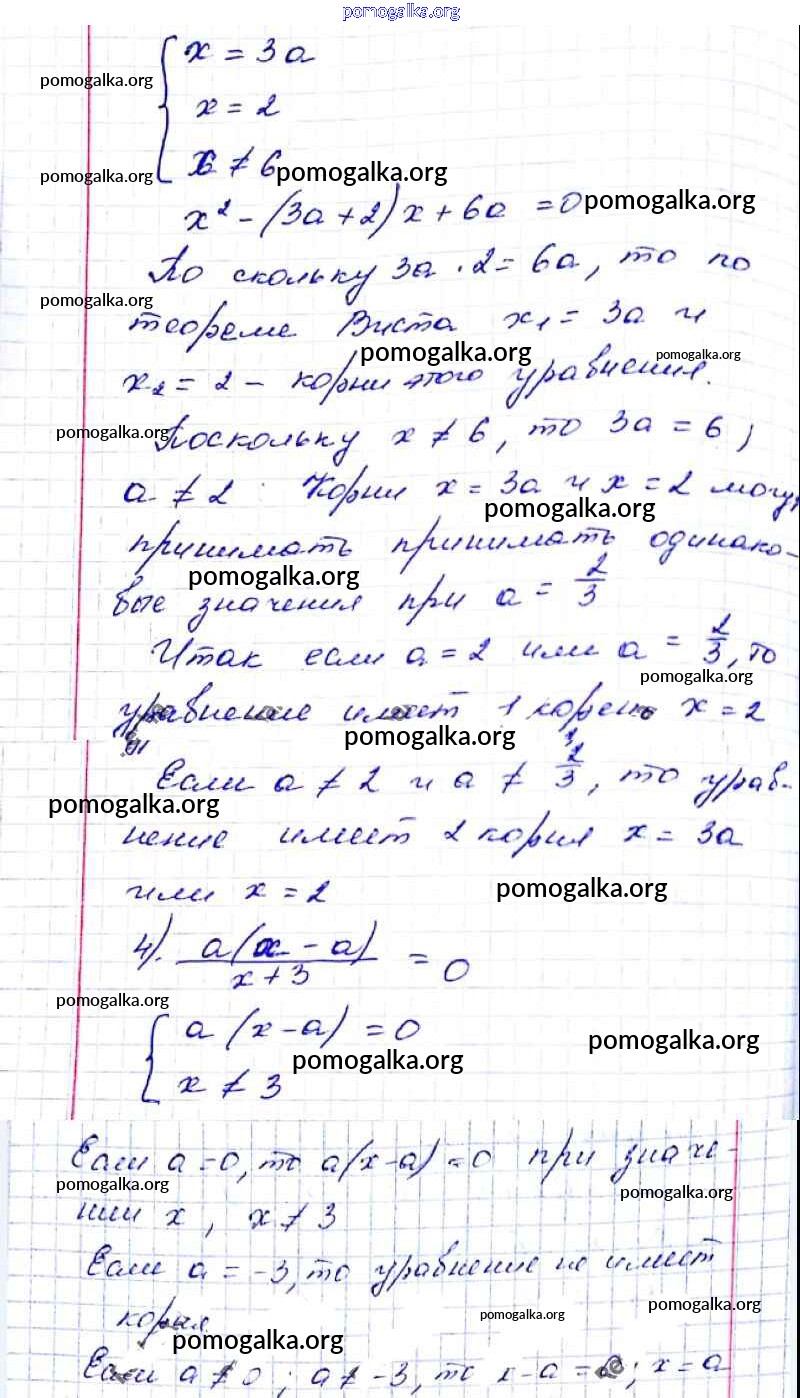 pomogalka.org
x = 3a
pomogalka.org
x = 2
x ≠ 6
pomogalka.org pomogalka.org
x² - (3a + 2)x + 6a = 0 pomogalka.org
По скольку 3a · 2 = 6a, то по
pomogalka.org
теореме Виета x₁ = 3a и
pomogalka.org pomogalka.org
x₂ = 2 - корни этого уравнения.
pomogalka.org
Поскольку x ≠ 6, то 3a = 6,
a ≠ 2. Корни x = 3a и x = 2 могут
pomogalka.org
принимать принимать одинако-
pomogalka.org
вые значения при a = 2/3
Итак если a = 2 или a = 2/3, то
pomogalka.org
уравнение имеет 1 корень x = 2
pomogalka.org
Если a ≠ 2 и a ≠ 2/3, то урав-
pomogalka.org
нение имеет 2 корня x = 3a
или x = 2
pomogalka.org
4). a(x - a)/x + 3 = 0
pomogalka.org
a(x - a) = 0
pomogalka.org pomogalka.org
x ≠ 3
Если a = 0, то a(x - a) = 0 при значе-
pomogalka.org pomogalka.org
нии x, x ≠ 3
Если a = -3, то уравнение не имеет
pomogalka.org
корня pomogalka.org
pomogalka.org
Если a ≠ 0; a ≠ -3, то x - a = 0; x = a